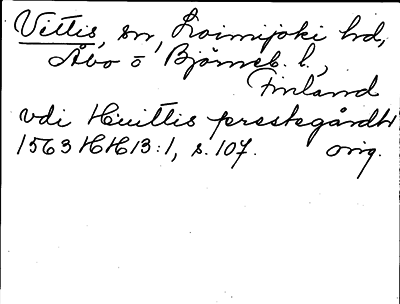 Vittis, sn, Loimijoki hd,
Åbo o Björneb. l.,
Finland
vdi Huittis prestegårdh
1563 HH13:1, s. 107. orig.